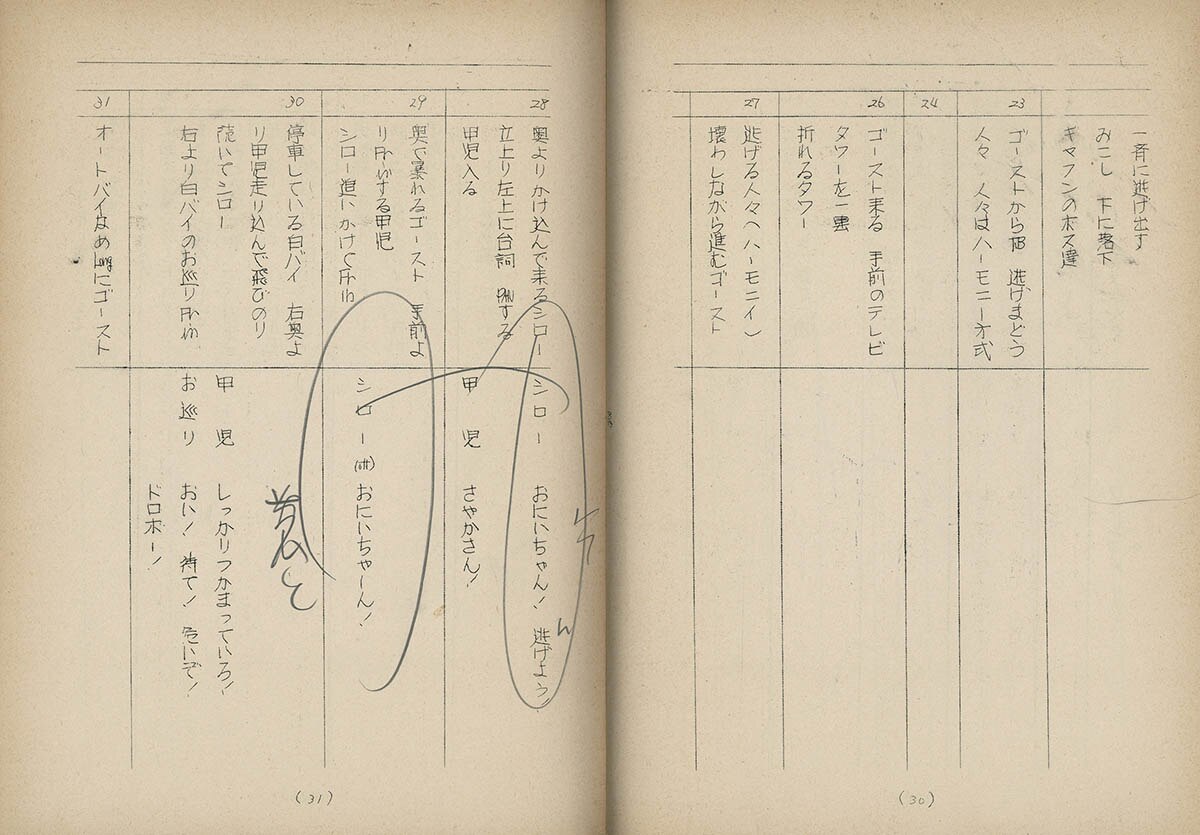 一斉に逃げ出す
みこし 下に落下
キャフンのボス達
23
ゴーストからTB 逃げまどう
人々 人々はハーモニー方式
24
26
ゴースト来る 手前のテレビ
タワーを一
折れるタワー
27
逃げる人々へハーモニイ)
壊わしながら進むゴースト
(30)
28
奥よりかけ込んで来るシロー
立上り左上に台詞 PANする
甲児入る
シロー おにいちゃん! 逃げよう!
ん
甲児 さやかさん!
29
奥で暴れるゴースト 手前よ
りFr inする甲児
シロー追いかけてFr in
シロー(off) おにいちゃーん!
30
停車している白バイ 右奥よ
り甲児走り込んで飛びのり
続いてシロー
右より白バイのお巡りFr in
甲児 しっかりつかまっていろ!
お巡り おい! 待て! 危いぞ!
ドロボー!
31
オートバイなめLongにゴースト
(31)